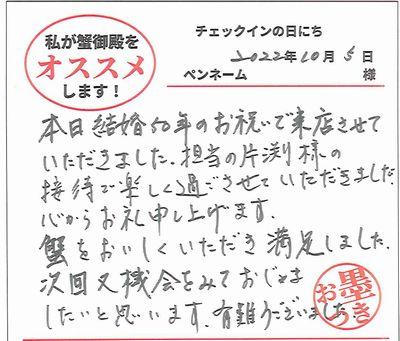 私が蟹御殿を
オススメ
します！
チェックインの日にち
2022年10月5日
ペンネーム
様
本日結婚50年のお祝いで来店させて
いただきました。担当の片渕様の
接待で楽しく過ごさせていただきました。
心からお礼申し上げます。
蟹をおいしくいただき満足しました。
次回又機会をみておじゃま
したいと思います。有難うございました。
墨
おつき